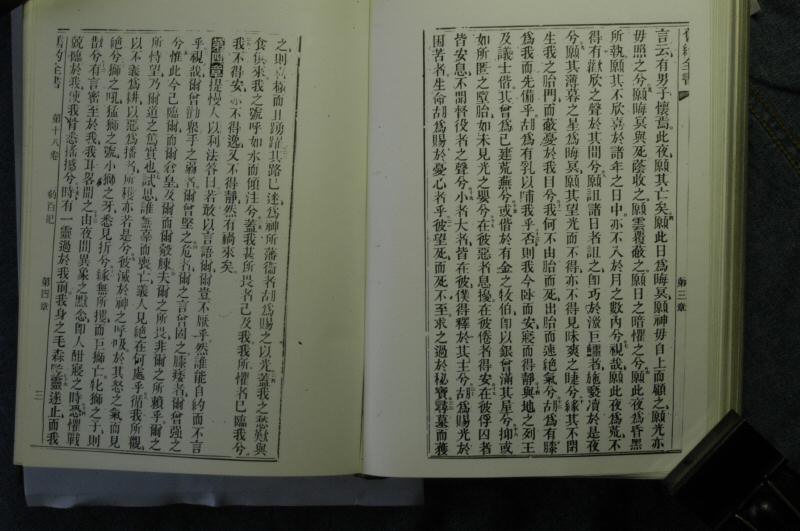 舊約全書
第三章
言云有男子懷焉此夜願其亡矣願此日爲晦冥願神毋自上而顧之願光亦
毋照之兮願晦冥與死蔭收之願雲覆蔽之願日之暗懼之兮願此夜爲昏黑
所執願其不欣喜於諸年之日中亦不入於月之數內兮視哉願此夜爲荒不
得有歡欣之聲於其間兮願詛諸日者詛之即巧於激巨鱷者施褻瀆於是夜
兮願其薄暮之星爲晦冥願其望光而不得亦不得見昧爽之睫兮緣其不閉
生我之胎門而蔽憂於我目兮我何不由胎而死出胎而速絕氣兮胡爲有膝
爲我而先備乎胡爲有乳以哺我乎否則我今臥而安寢而得靜與地之列王
及議士偕其曾爲己建荒蕪兮或偕於有金之牧伯即以銀曾滿其室兮抑或
如所匿之墮胎如未見光之嬰兮在彼惡者息擾在彼倦者得安在彼俘囚者
皆安息不聞督役者之聲兮小者大者皆在彼僕得釋於其主兮胡爲賜光於
困苦者生命胡爲賜於憂心者乎彼望死而死不至求之過於秘寶尋墓而獲
之則喜極而且踴躍其路已迷爲神所藩衞者胡爲賜之以光蓋我之愁歎與
食俱來我之號呼如水而傾注兮蓋我甚所畏者已及我我所懼者已臨我兮
我不得安亦不得逸又不得靜然有禍來矣
第四章提幔人以利法答曰若敢以言語爾爾豈不厭乎然誰能自約而不言
乎視哉爾曾訓衆手之弱者爾曾堅之危者爾之言曾固之膝痿者爾曾強之
兮惟此今已臨爾而爾倉皇及爾而爾觳觫夫爾之所畏非爾之所賴乎爾之
所恃望乃爾道之篤實也試思誰無辜而喪亡義人見絕在何處乎循我所觀
以不義爲耕以惡爲播者所穫亦若是兮彼滅於神之呼吸於其怒之氣而見
絕兮獅之吼猛獅之號小獅之牙悉見折兮緣無所攫而巨獅亡牝獅之子則
散兮有言密至於我我耳畧聞之由夜間異象之默念即人酣寢之時恐懼戰
兢臨於我使我骨悉搖撼兮時有一靈過於我前我身之毛森豎靈遂止而我
舊約全書
第十八卷
約百記
第四章
三